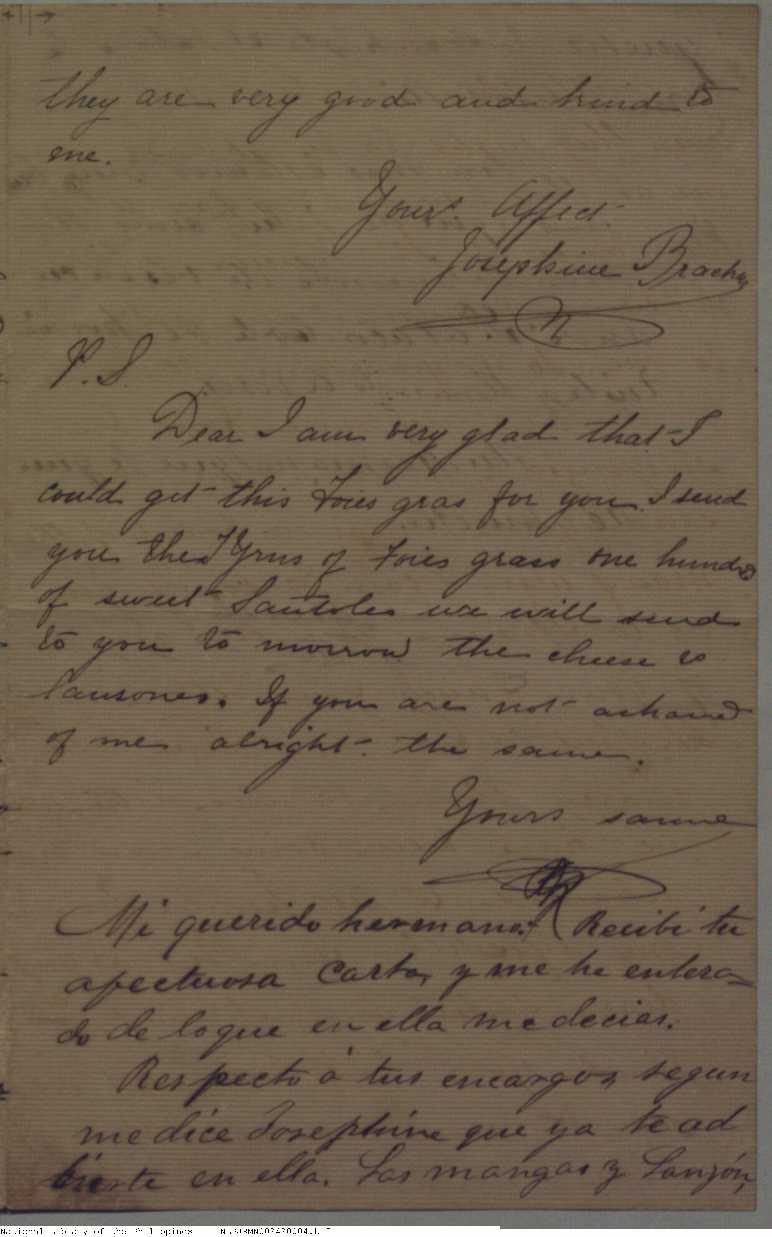 they are very good and kind to
me.
Yours. Affect.
Josephine Bracken
P.S.
Dear I am very glad that I
could get this Foies gras for you. I send
you the Tyrns of Foies grass one hundred
of sweet Santoles we will send
to you to morrow the cheese &
lansones. If you are not ashamed
of me alright. the same.
Yours same
Mi querido hermano: Recibi tu
afectuosa carta, y me he entera-
do de lo que en ella me decias.
Respecto á tus encargos, segun
me dice Josephine que ya te ad
bierte en ella. Las mangas y Lanzón,
National Library of the Philippines